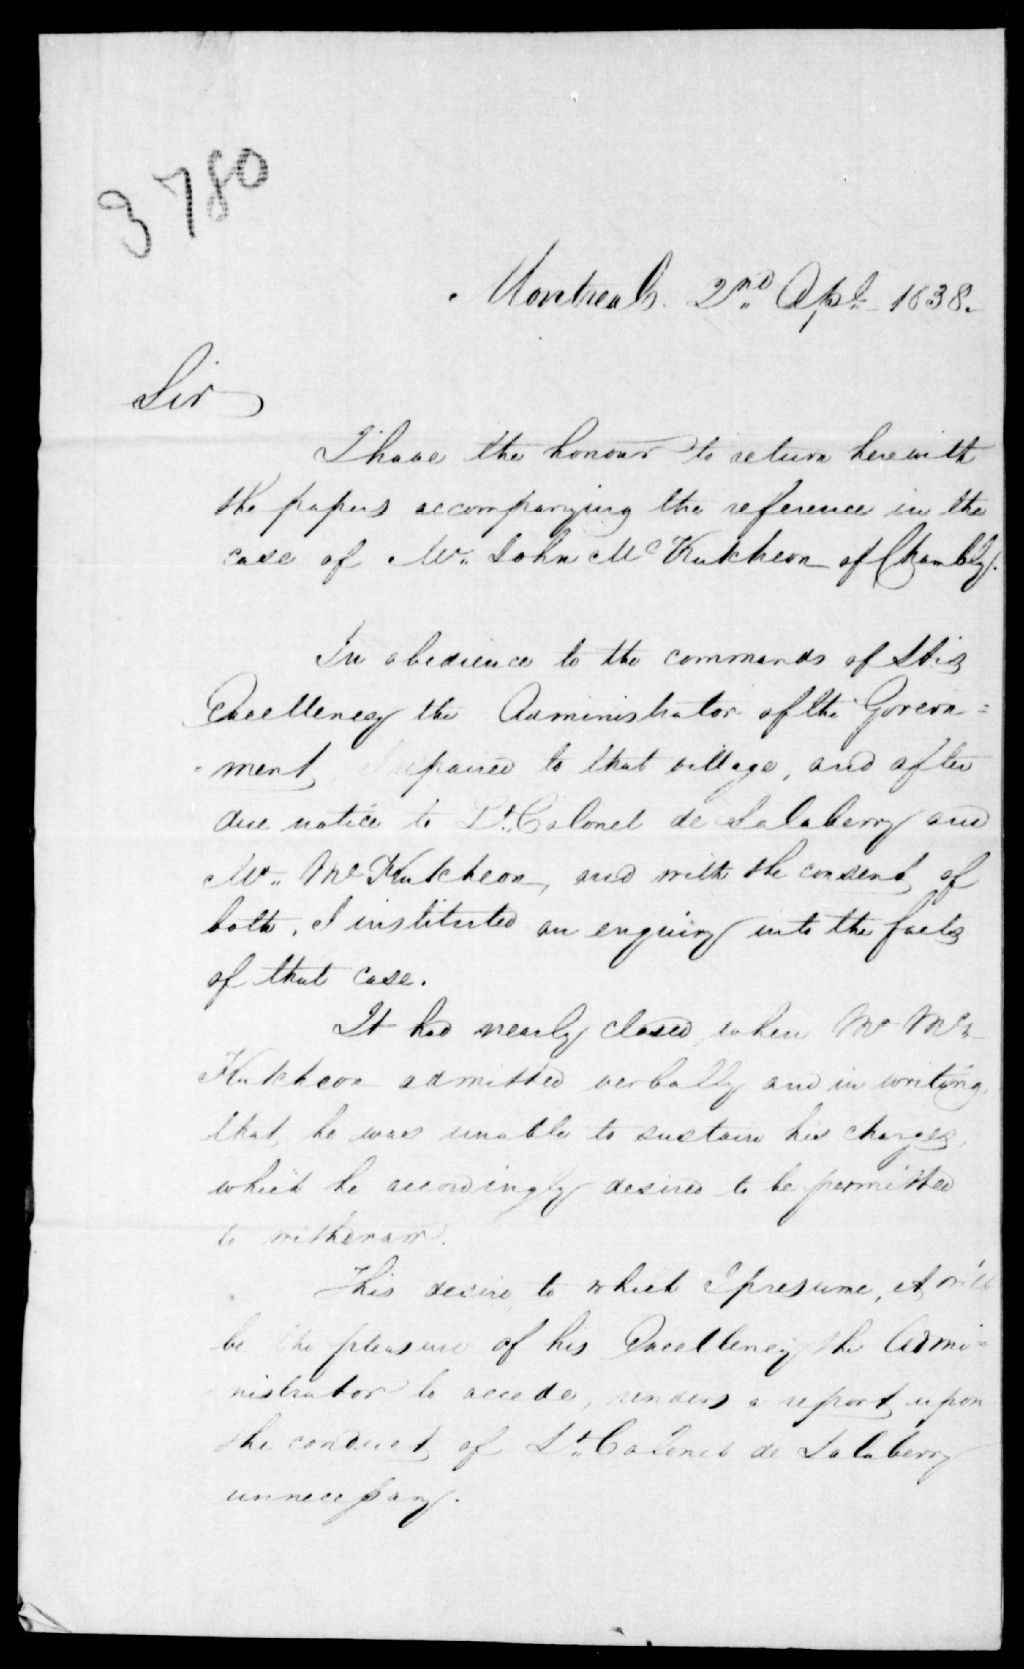 3780
Montreal. 2nd Apl. 1838.
Sir
I have the honour to return herewith
the papers accompanying the reference in the
case of Mr. John McKutcheon of Chambly.
In obedience to the commands of His
Excellency the Administrator of the Govern=
ment, I repaired to that village, and after
due notice to Lt. Colonel de Salaberry and
Mr. McKutcheon, and with the consent of
both, I instituted an enquiry into the facts
of that case.
It had nearly closed when Mr Mc-
Kutcheon admitted verbally and in writing,
that he was unable to sustain his charges,
which he accordingly desired to be permitted
to withdraw.
This desire to which I presume, it will
be the pleasure of his Excellency the Admi=
nistrator to accede, renders a report upon
the conduct of Lt. Colonel de Salaberry
unnecessary.